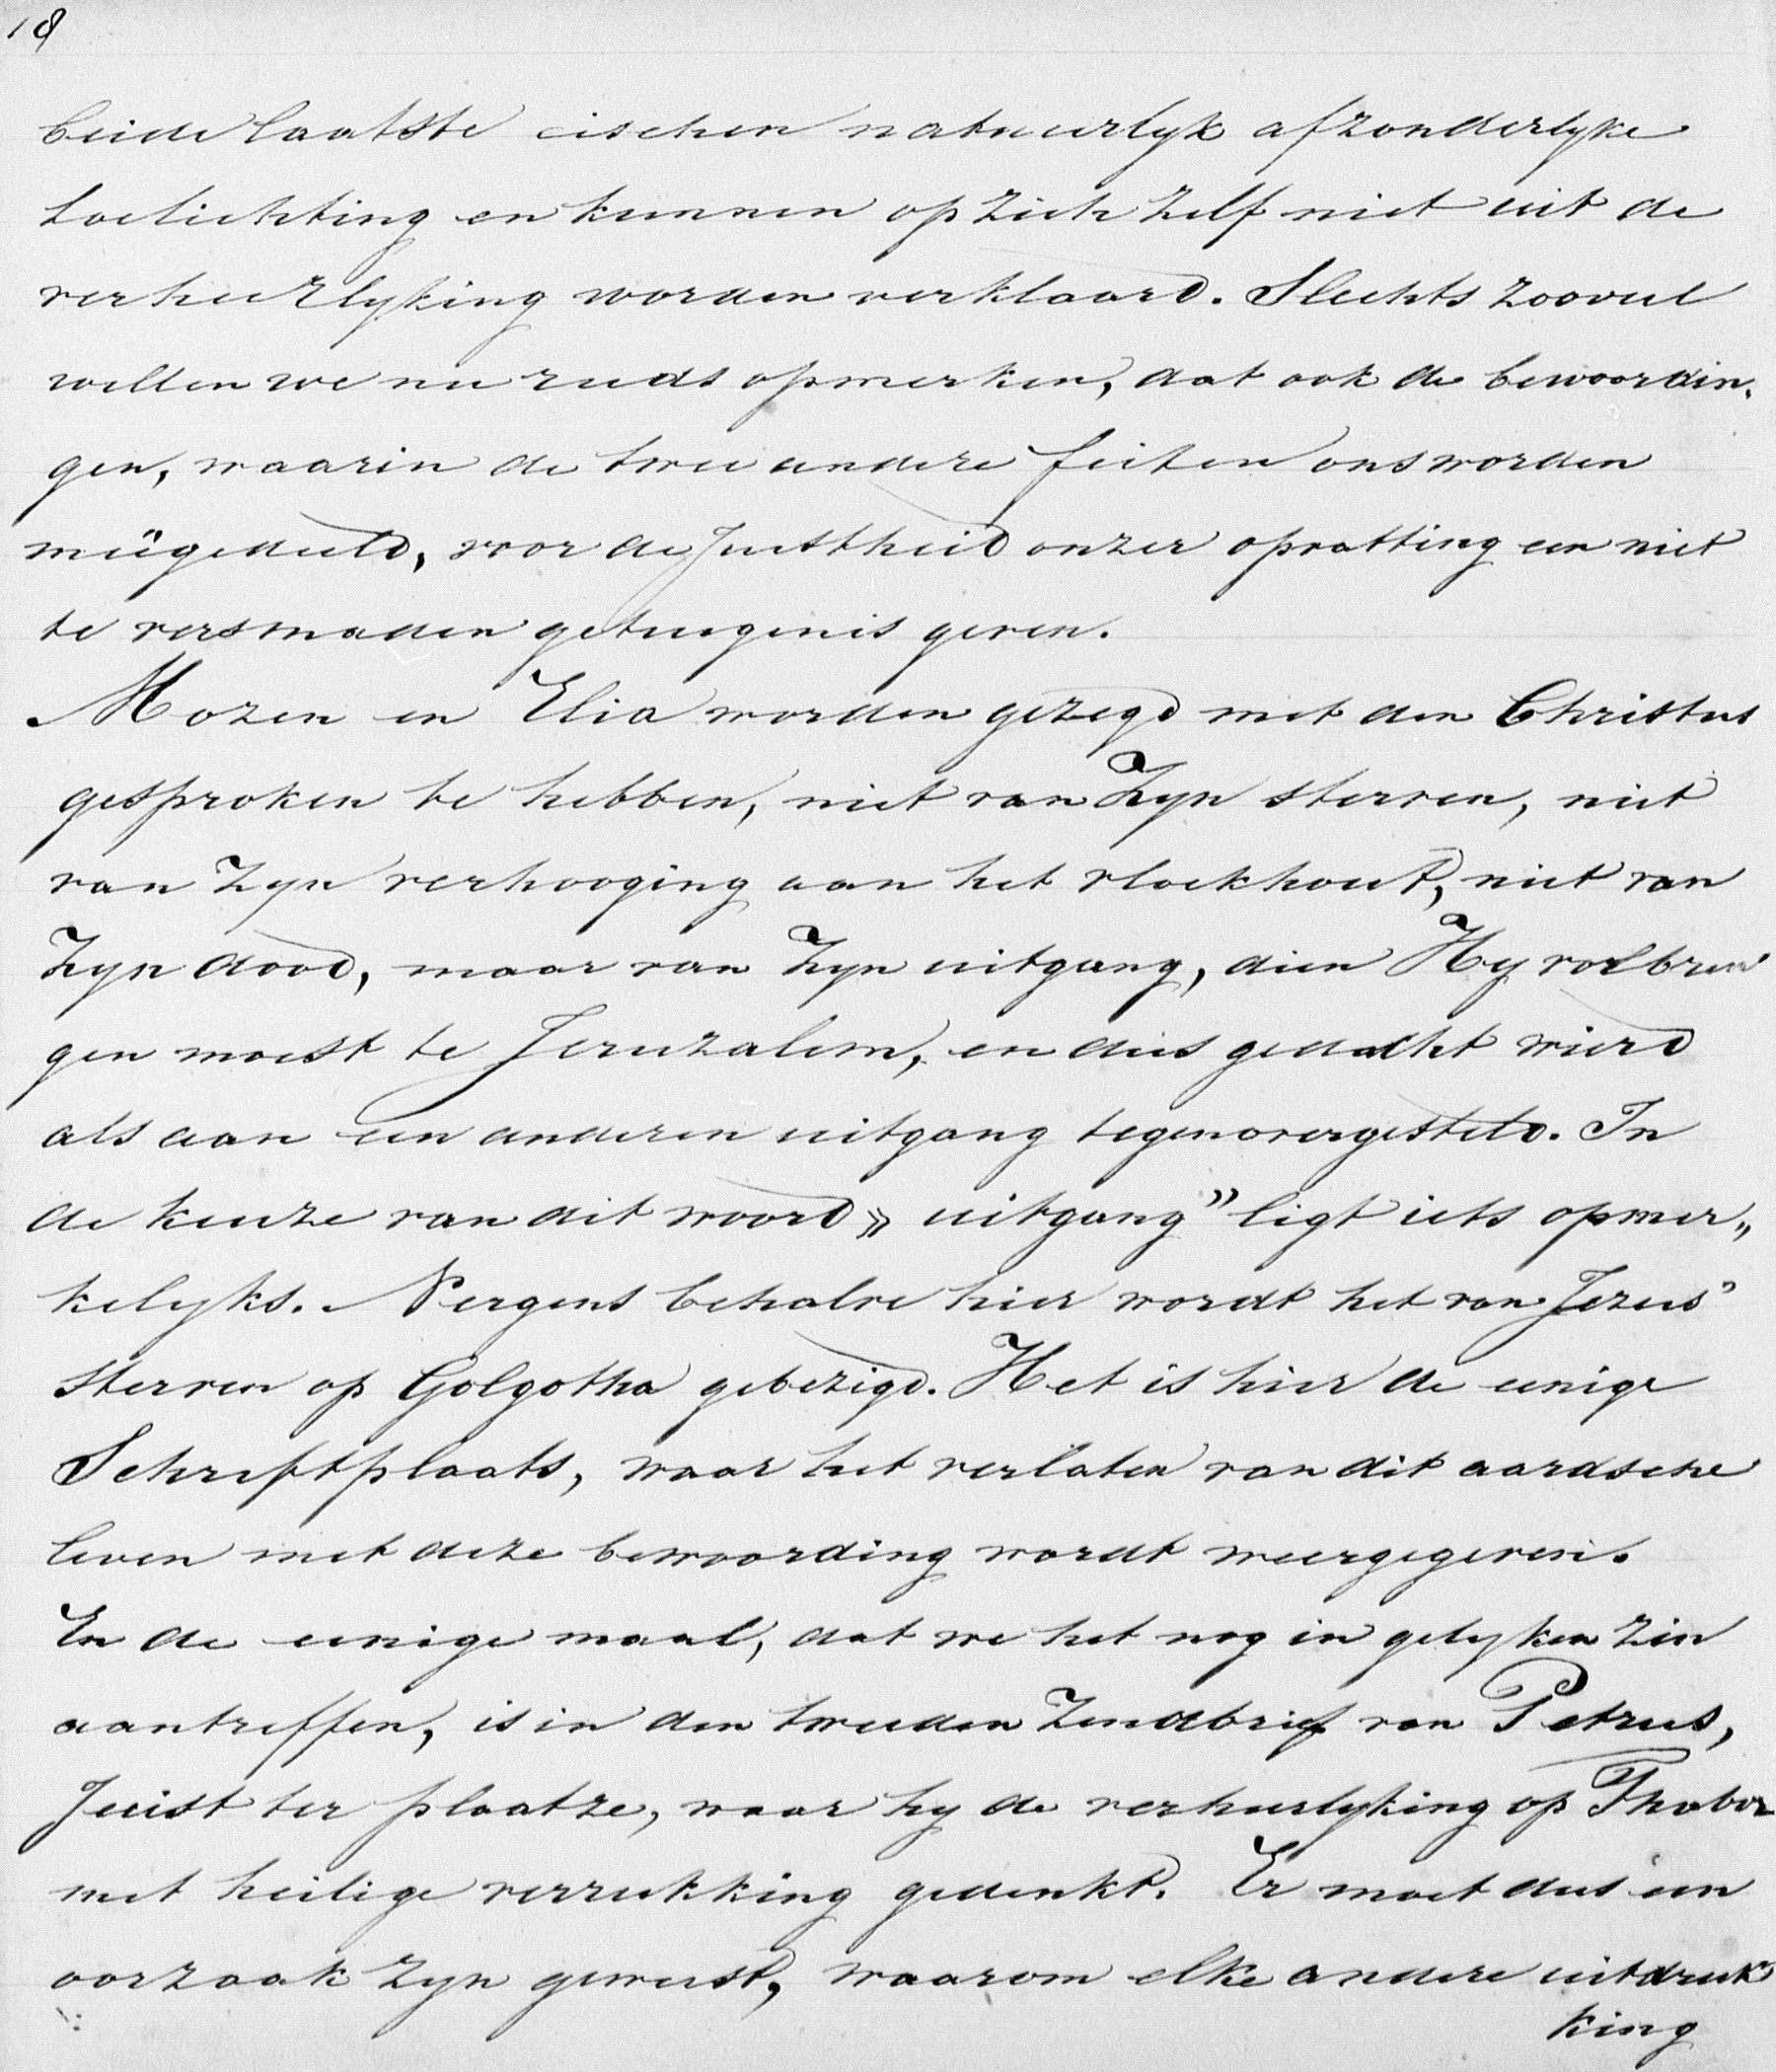 18
beide laatste eischen natuurlyk afzonderlyke
toelichting en kunnen op zich zelf niet uit de
verheerlyking worden verklaard. Slechts zooveel
willen we nu reeds opmerken, dat ook de bewoordin„
gen, waarin de twee andere feiten ons worden
meêgedeeld, voor de juistheid onzer opvatting een niet
te versmaden getuigenis geven.
Mozen en Elia worden gezegd met den Christus
gesproken te hebben, niet van Zyn sterven, niet
van Zyn verhooging aan het vloekhout, niet van
Zyn dood, maar van Zyn uitgang, dien Hy volbren
gen moest te Jeruzalem, en dus gedacht wierd
als aan een anderen uitgang tegenovergesteld. In
de keuze van dit woord „uitgang” ligt iets opmer„
kelyks. Nergens behalve hier wordt het van Jezus'
sterven op Golgotha gebezigd. Het is hier de eenige
Schriftplaats, waar het verlaten van dit aardsche
leven met deze bewoording wordt weergegeven.
En de eenige maal, dat we het nog in gelyken zin
aantreffen, is in den tweeden Zendbrief van Petrus,
juist ter plaatze, waar hy de verheerlyking op Thabor
met heilige verrukking gedenkt. Er moet dus een
oorzaak zyn geweest, waarom elke andere uitdruk
king